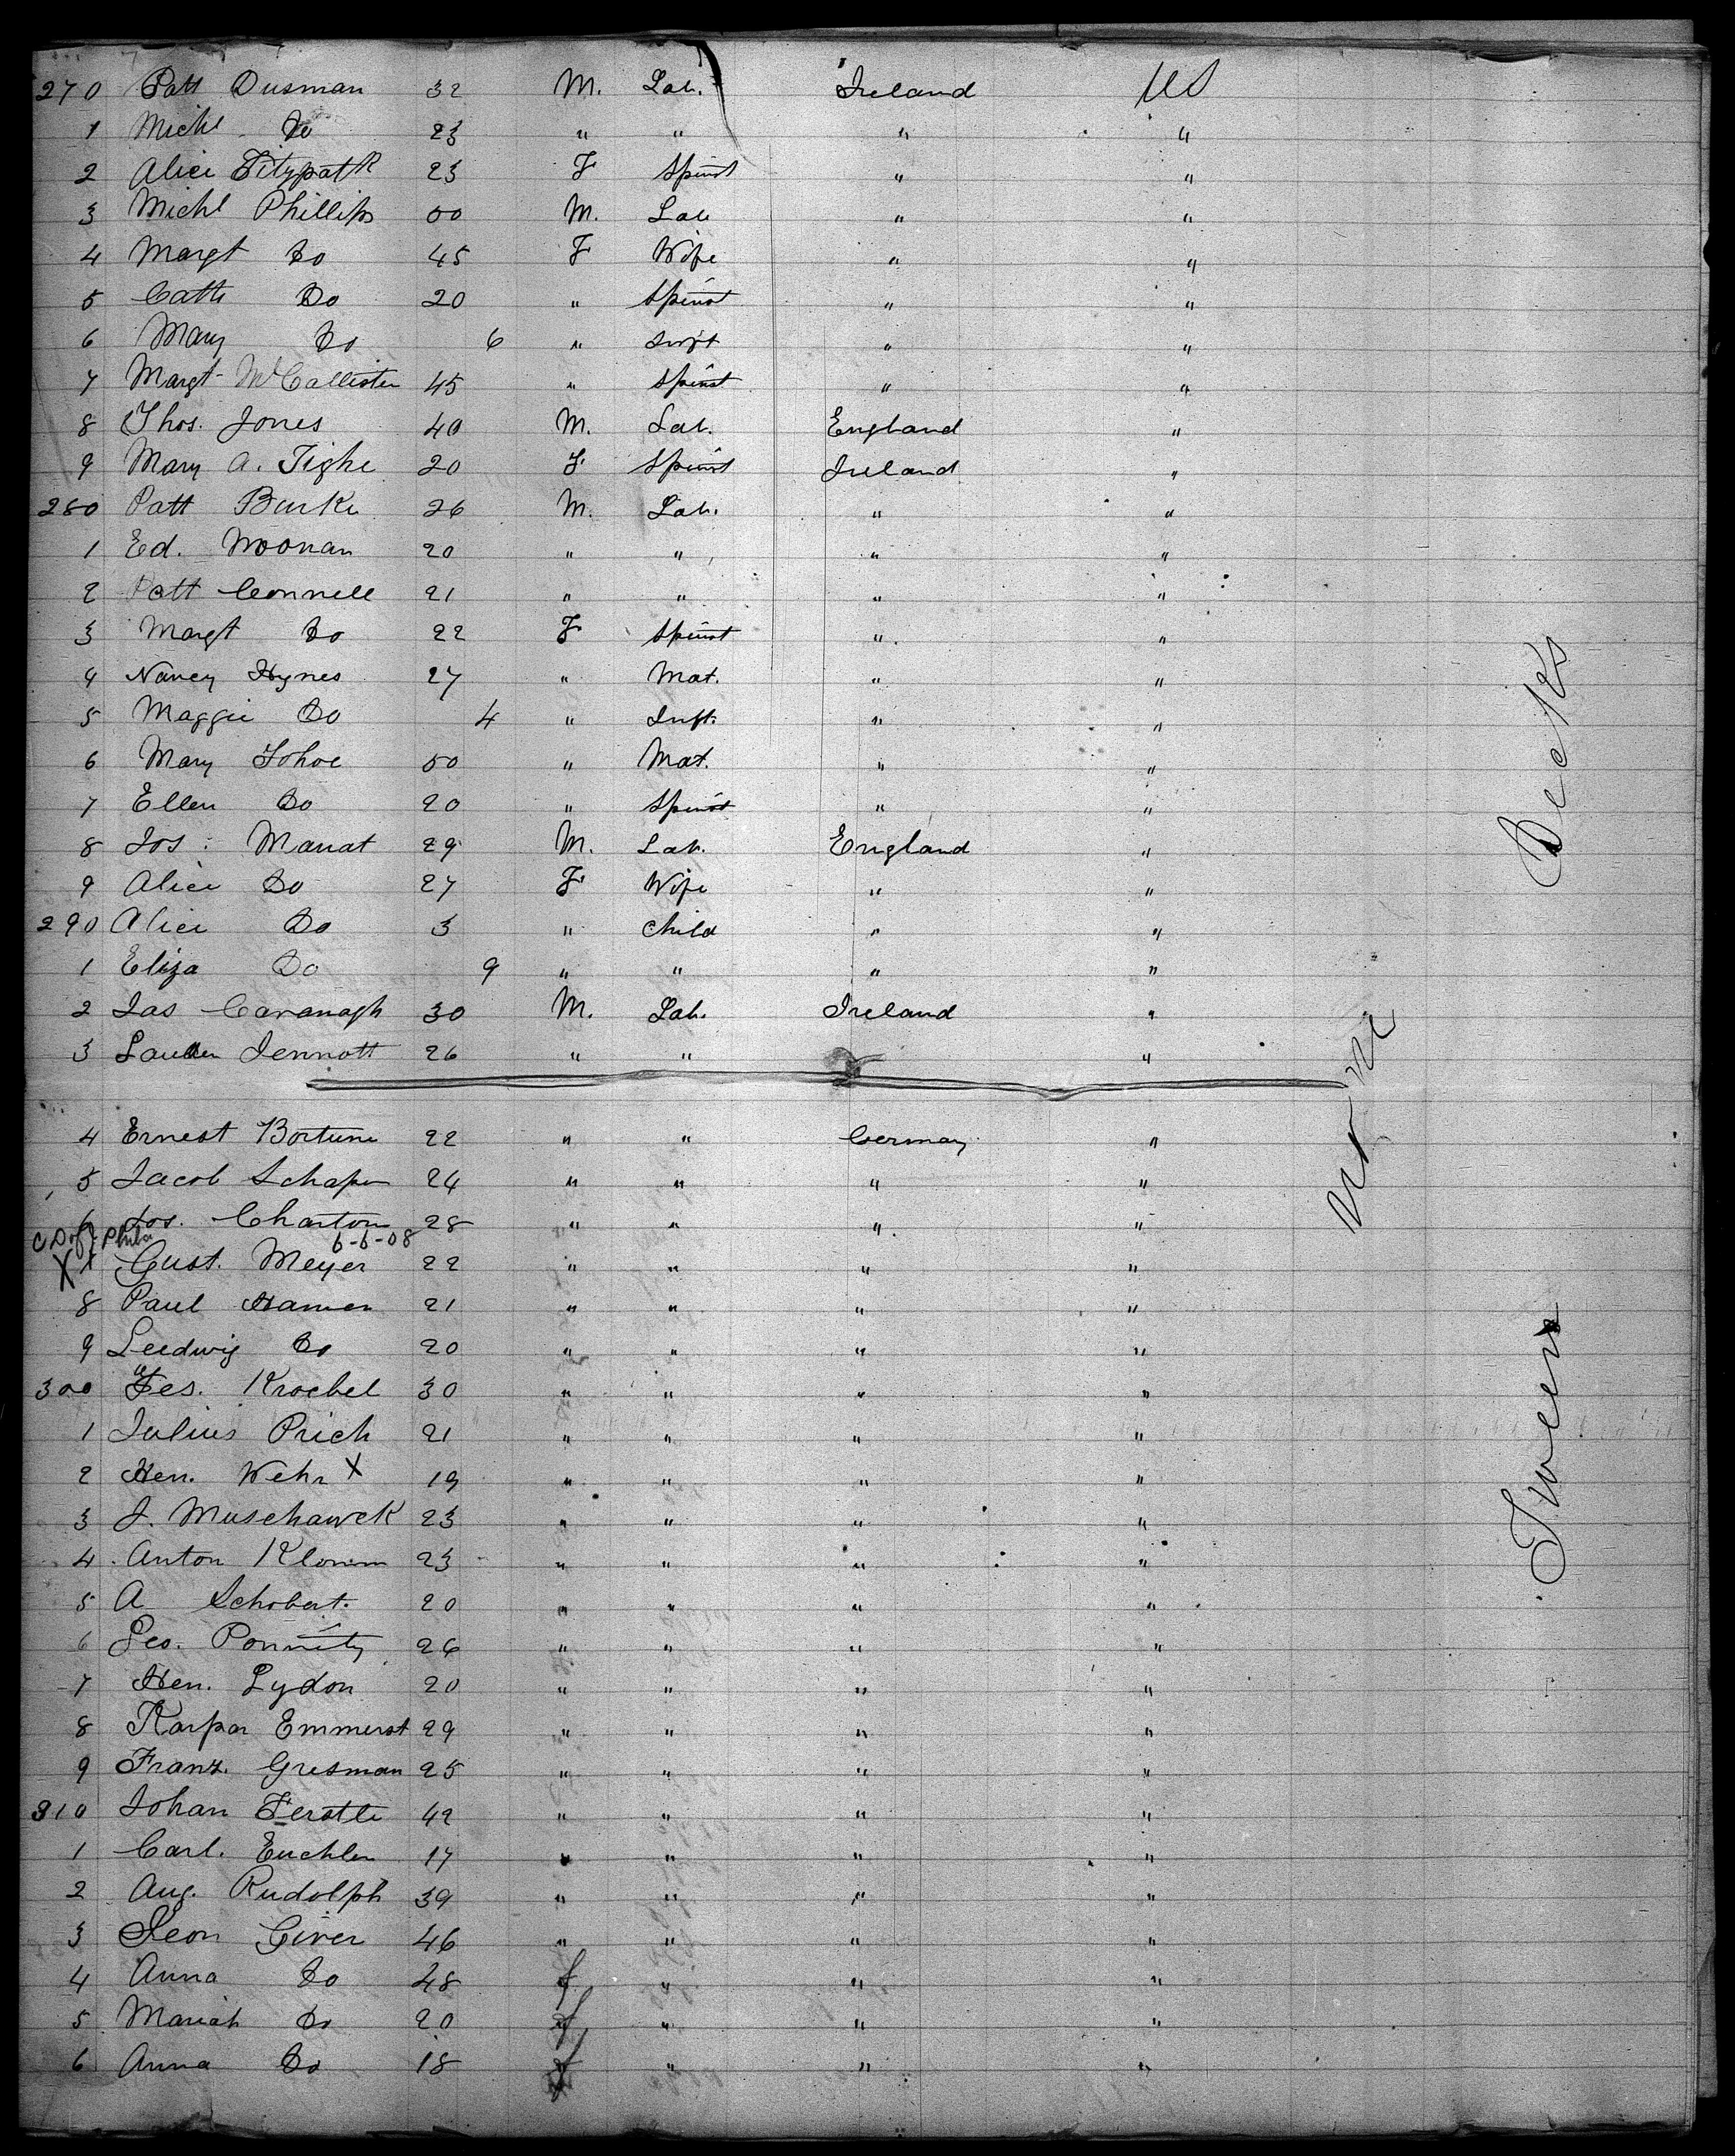 270 Patt Dusman 32 M. Lab. Ireland US
1 Michl Do 23 " " " "
2 Alice Fitzpatk 23 F Spinst " "
3 Michl Phillips 50 M. Lab " "
4 Margt Do 45 F Wife " "
5 Cath Do 20 " Spinst " "
6 Mary Do 6 " Inft " "
7 Margt McCallister 45 " Spinst " "
8 Thos. Jones 40 M. Lab. England "
9 Mary A. Tighe 20 F Spinst Ireland "
280 Patt Burke 26 M. Lab. " "
1 Ed. Noonan 20 " " " "
2 Patt Connell 21 " " " "
3 Margt Do 22 F Spinst " "
4 Nancy Hynes 27 " Mat. " "
5 Maggie Do 4 " Inft. " "
6 Mary Fohoe 50 " Mat. " "
7 Ellen Do 20 " Spinst " "
8 Jos: Manat 29 M. Lab. England "
9 Alice Do 27 F Wife " "
290 Alice Do 3 " Child " "
1 Eliza Do 9 " " " "
2 Jas Cavanagh 30 M. Lab. Ireland "
3 Jennott 26 " " "
4 Ernest Bortune 22 " " Germany "
5 Jacob Schaper 24 " " " "
6 Jos. Charton 28 " " " "
C Dof J Phila 6-6-08
X 7 Gust. Meyer 22 " " " "
8 Paul Hamen 21 " " " "
9 Ludwig Do 20 " " " "
300 Fes. Kroebel 30 " " " "
1 Julius Prich 21 " " " "
2 Hen. Wehr X 19 " " " "
3 J. Muschawck 23 " " " "
4 Anton Klomm 23 " " " "
5 A Schobert. 20 " " " "
6 Geo. 26 " " " "
7 Hen. Lydon 20 " " " "
8 Karpar Emmerst 29 " " " "
9 Franz. Gresman 25 " " " "
310 Johan Ferstle 42 " " " "
1 Carl. Euchler 17 " " " "
2 Aug. Rudolph 39 " " " "
3 Leon Giver 46 " " " "
4 Anna Do 48 f " " "
5 Mariah Do 20 f " " "
6 Anna Do 18 f " " "
Tween Decks
None